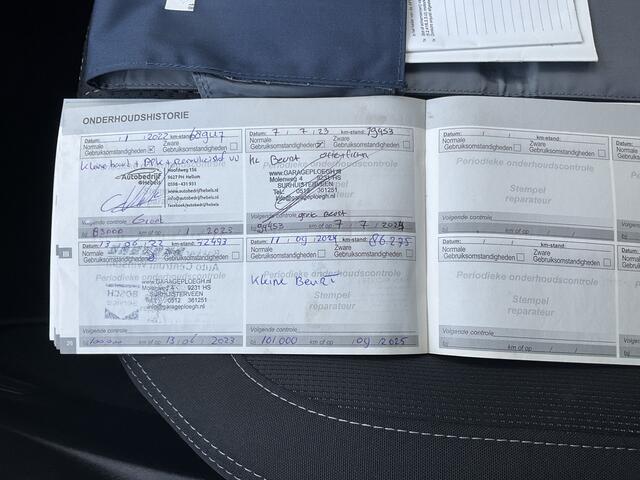 ONDERHOUDSHISTORIE
Datum: 1 / 2022 km-stand: 68947
Normale Gebruiksomstandigheden
Zware Gebruiksomstandigheden
Kleine beurt + APK
Autobedrijf
Hoofdweg 156
9627 PH Hellum
0598 - 431 931
www.autobedrijfhebels.nl
info@autobedrijfhebels.nl
facebook/autobedrijfhebels.nl
Volgende controle Groot
bij 83000 km of op 1 2023
Datum: 7 / 7 / 23 km-stand: 79453
Normale Gebruiksomstandigheden
Zware Gebruiksomstandigheden
Beurt
www.GARAGEPLOEGH.NL
Molenweg 4 9231 HS
SURHUISTERVEEN
Tel.: 0512 361251
info@garageploegh.nl
Volgende controle Beurt
km of op 7 / 7 2024
Datum: km-stand:
Normale Gebruiksomstandigheden
Zware Gebruiksomstandigheden
Periodieke onderhoudscontrole
Stempel
reparateur
Volgende controle
bij km of op / /
13 / 06 / 22
Normale Gebruiksomstandigheden
Zware Gebruiksomstandigheden
www.GARAGEPLOEGH.NL
Molenweg 4 9231 HS
SURHUISTERVEEN
Tel.: 0512 361251
info@garageploegh.nl
BOSCH
Volgende controle
bij 100.000 km of op 13 / 06 / 2023
11 / 09 / 2024 86275
Normale Gebruiksomstandigheden
Zware Gebruiksomstandigheden
Periodieke onderhoudscontrole
Kleine Beurt
Stempel
reparateur
Volgende controle
bij 101.000 km of op / 09 / 2025
Datum: km-stand:
Normale Gebruiksomstandigheden
Zware Gebruiksomstandigheden
Periodieke onderhoudscontrole
Stempel
reparateur
Volgende controle
bij km of op / /
26